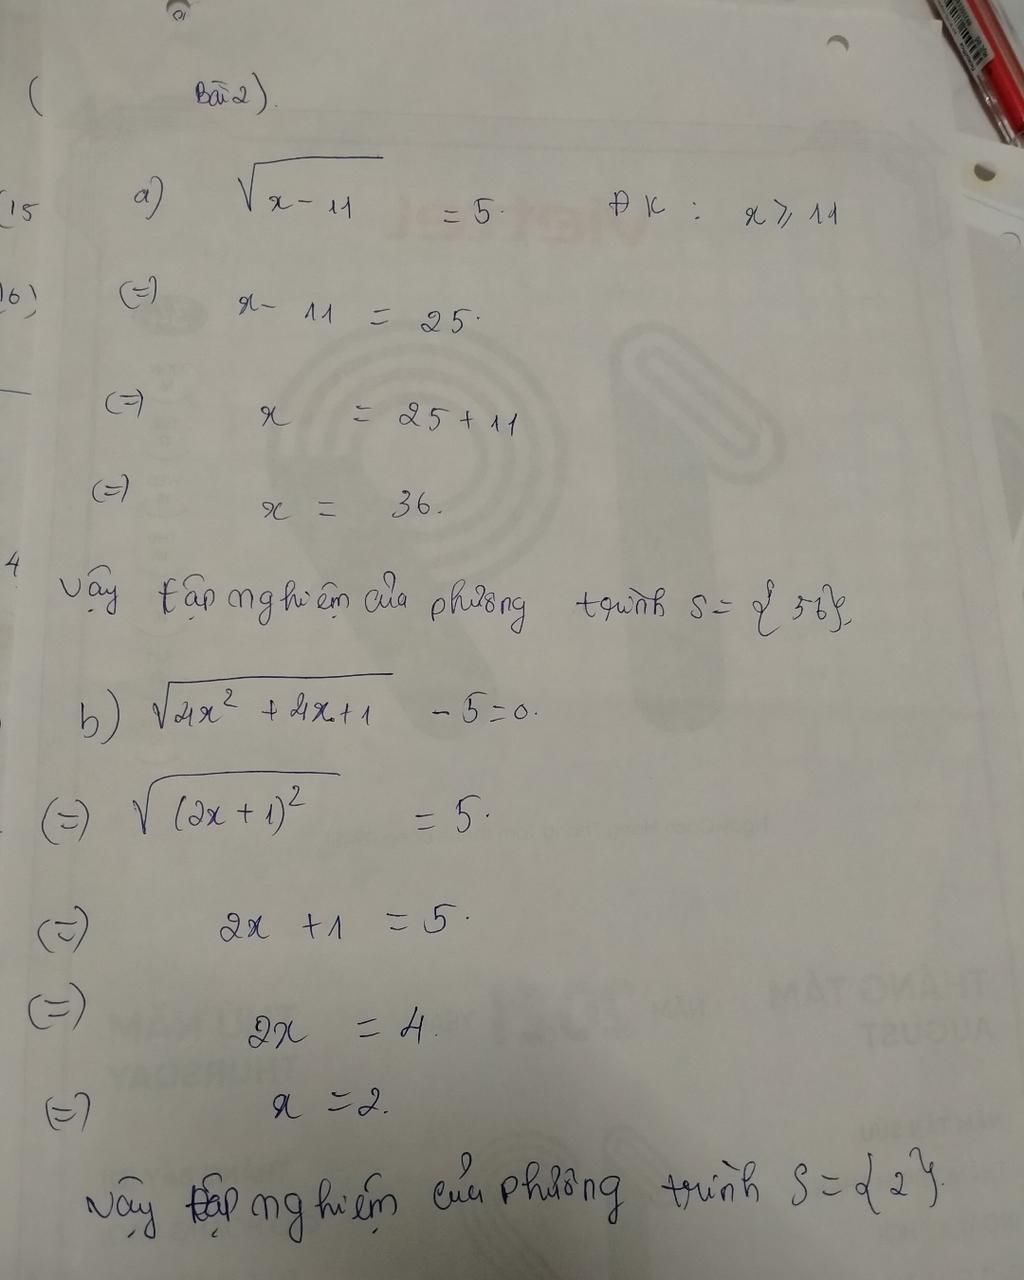 Bài 2).
a) √(x - 11) = 5. ĐK : x ⩾ 11
(=) x - 11 = 25.
(=) x = 25 + 11
(=) x = 36.
Vậy tập nghiệm của phương trình S = { 36}.
b) √(4x² + 4x + 1) - 5 = 0.
(=) √((2x + 1)²) = 5.
(=) 2x + 1 = 5.
(=) 2x = 4.
(=) x = 2.
Vậy tập nghiệm của phương trình S = {2}.
(15
16)
4